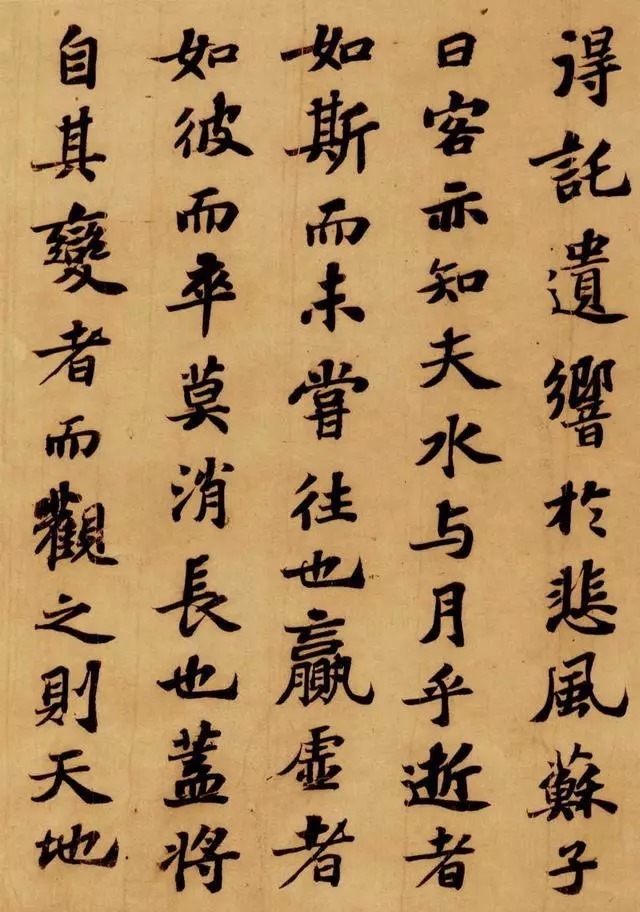 得託遺響於悲風蘇子
曰客亦知夫水与月乎逝者
如斯而未嘗往也贏虛者
如彼而卒莫消長也蓋將
自其變者而觀之則天地